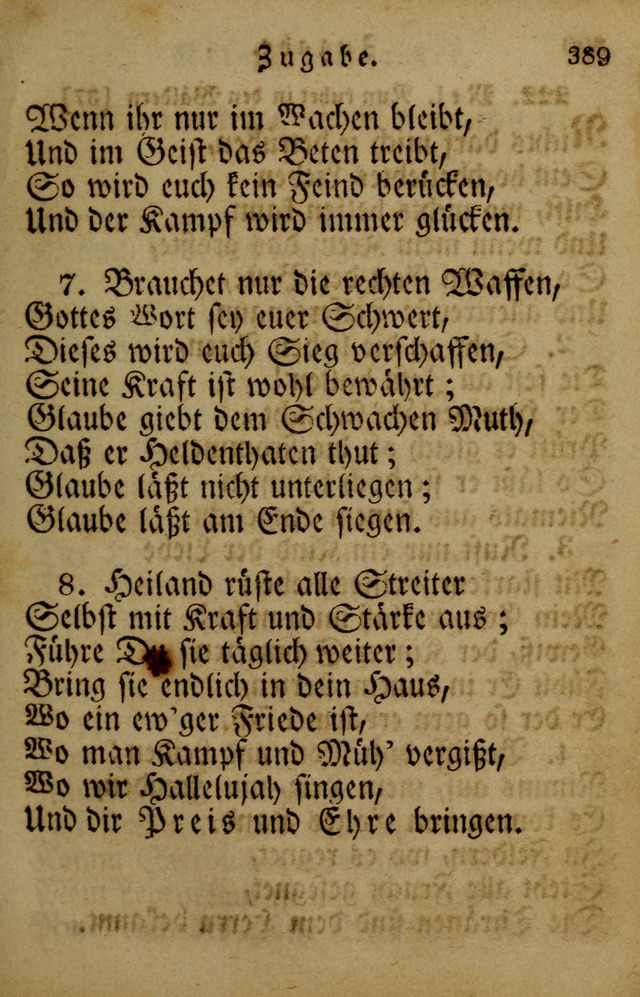 Zugabe. 389
Wenn ihr nur im Wachen bleibt,
Und im Geist das Beten treibt,
So wird euch kein Feind berücken,
Und der Kampf wird immer glücken.
7. Brauchet nur die rechten Waffen,
Gottes Wort sey euer Schwert,
Dieses wird euch Sieg verschaffen,
Seine Kraft ist wohl bewährt;
Glaube giebt dem Schwachen Muth,
Daß er Heldenthaten thut;
Glaube läßt nicht unterliegen;
Glaube läßt am Ende siegen.
8. Heiland rüste alle Streiter
Selbst mit Kraft und Stärke aus;
Führe Du sie täglich weiter;
Bring sie endlich in dein Haus,
Wo ein ew'ger Friede ist,
Wo man Kampf und Müh' vergißt,
Wo wir Hallelujah singen,
Und dir Preis und Ehre bringen.